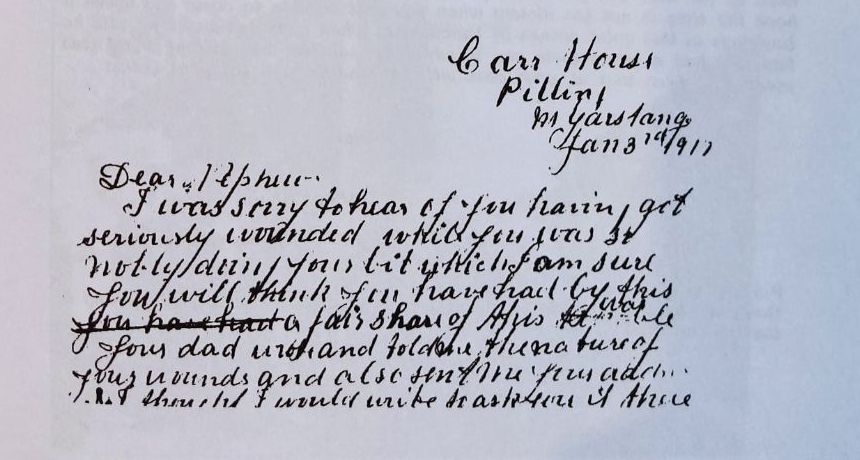 Carr House
Pilling
Nr Garstang
Jan 3rd 1917
Dear Nephew
I was sorry to hear of you having got
seriously wounded while you was so
nobly doing your bit which I am sure
you will think you have had by this
you have had a fair share of this terrible war
Your dad wrote and told me the nature of
your wounds and also sent me your
I thought I would write to ask you if there